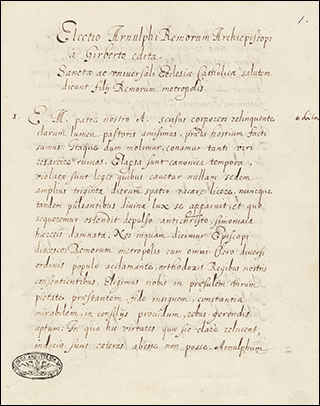 1.
Electio Arnulphi Remorum Archiepiscopi
à Girberto edita.
Sanctæ ac vniuersali Ecclesiæ Catholicæ salutem
dicunt filij Remorum metropolis.
E. M. patre nostro A. sensus corporeos relinquente
clarum lumen pastoris amisimus, præda hostium facti
sumus itaque dum molimur, conamur tanti viri
resarcire ruinas. Elapsa sunt canonica tempora,
violatæ sunt leges quibus cauetur nullam sedem
amplius triginta dierum spatio vacare licere, nuncque
tandem pulsantibus diuina lux se apparuit, et quò
sequeremur ostendit depulso antichristo, simoniaca
hæresis damnata. Nos inquam dicimur Episcopi
diœceseos Remorum metropolis cum omni Clero diuersi
ordinis populo acclamante, orthodoxis Regibus nostris
consentientibus. Eligimus nobis in præsulem virum
pietate præstantem fide insignem, constantia
mirabilem, in consilijs prouidum, rebus gerendis
aptum: In quo hæ virtutes quæ sic clarè relucent,
indicio sunt cæteras abesse non posse. Arnulphum